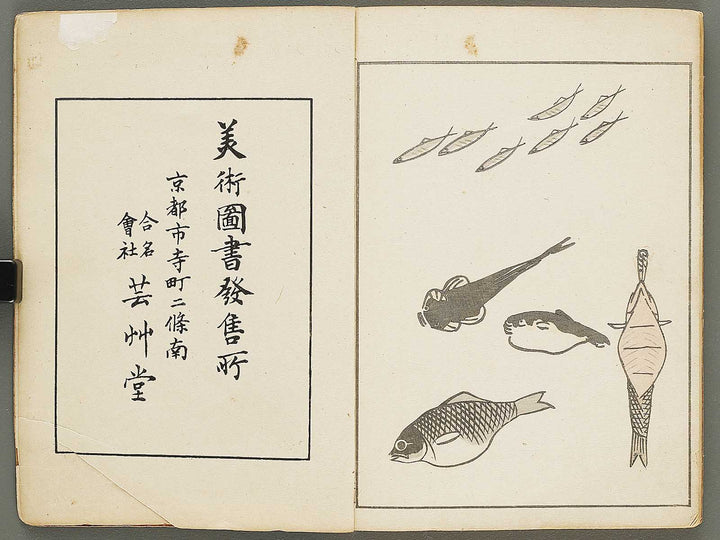 美術圖書發售所
京都市寺町二條南
合名會社 芸艸堂